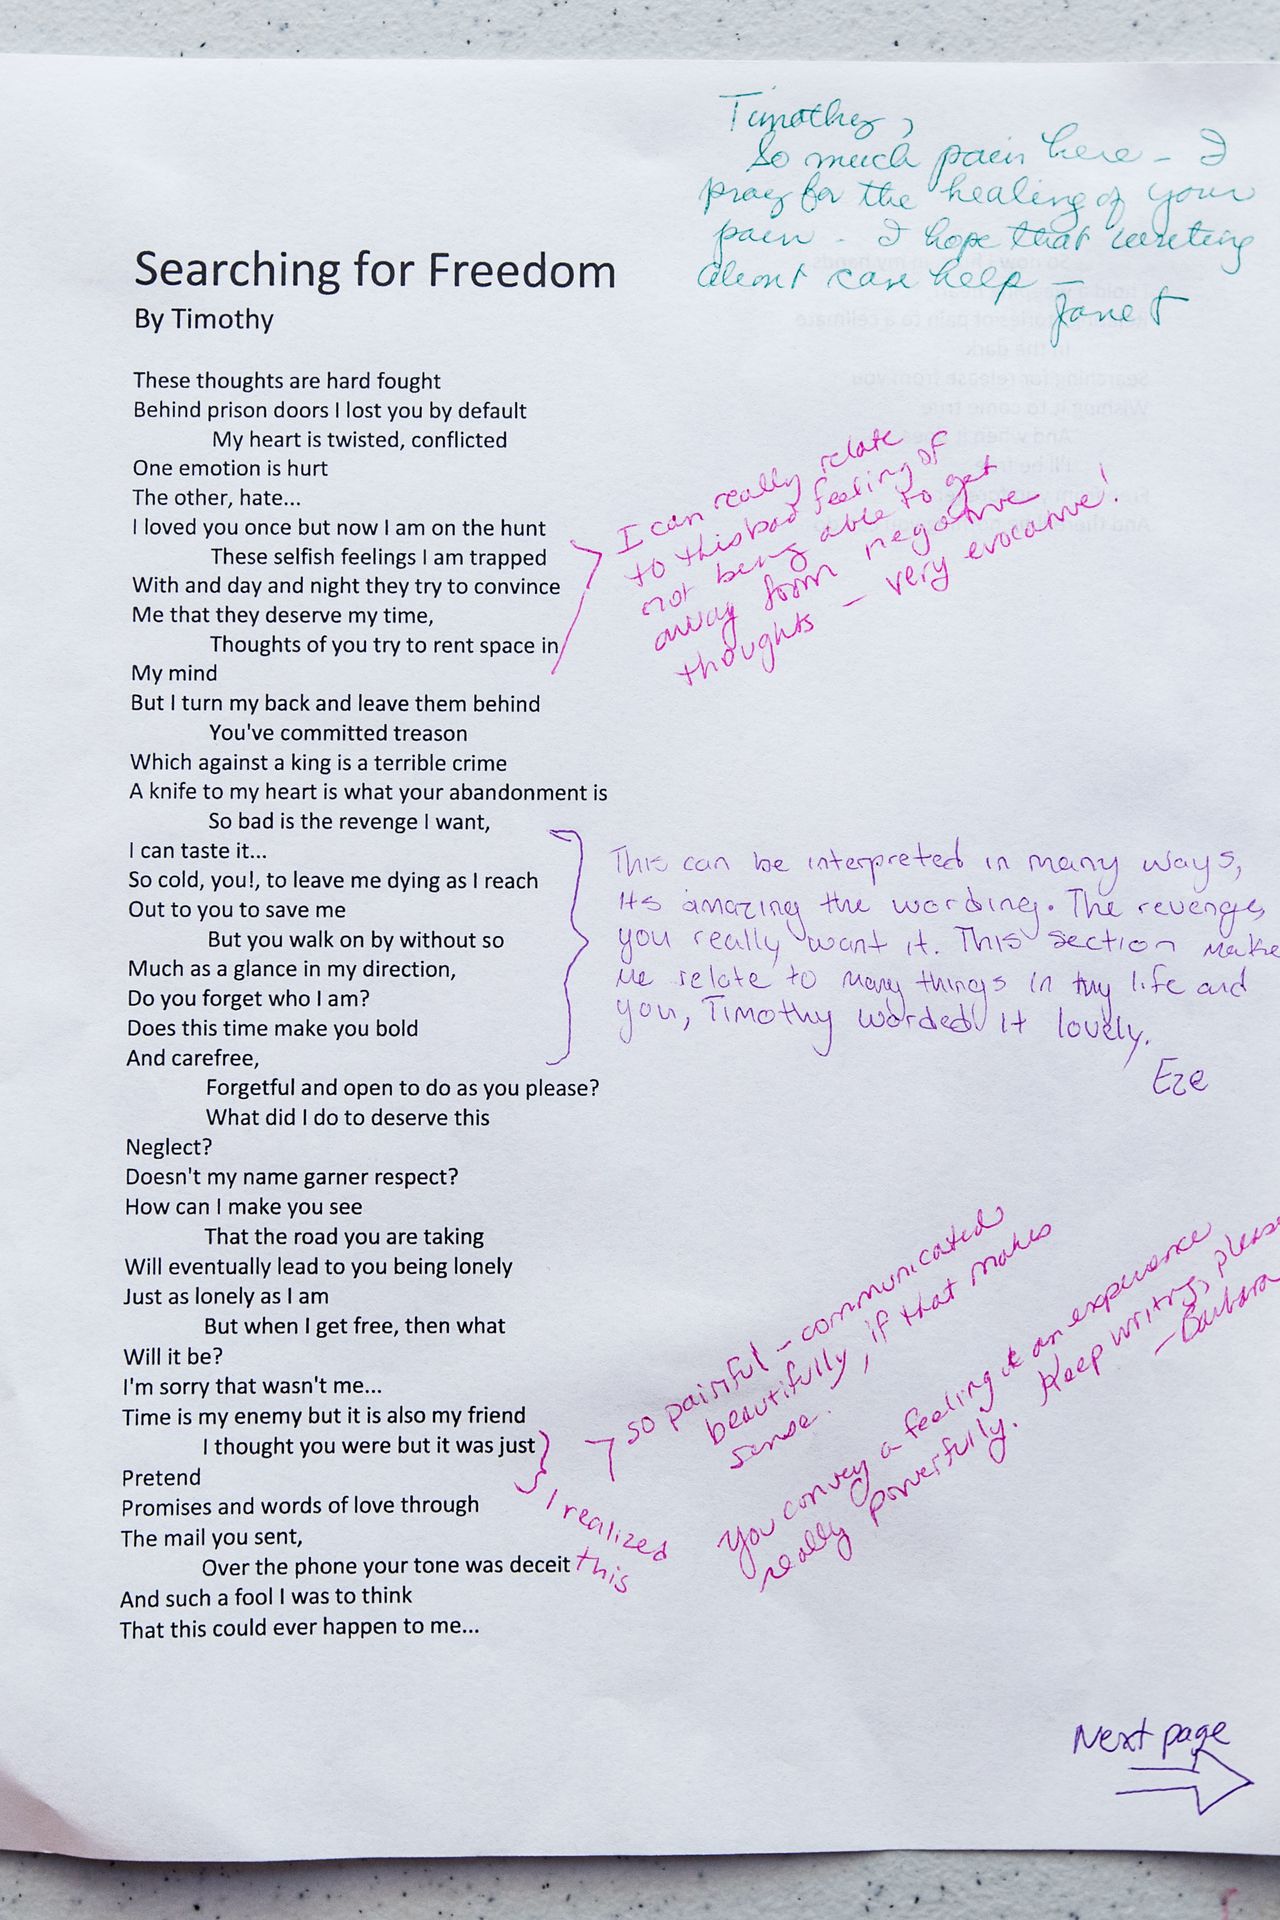 Timothy,
So much pain here - I
pray for the healing of your
pain - I hope that writing
about can help -
Janet
Searching for Freedom
By Timothy
These thoughts are hard fought
Behind prison doors I lost you by default
My heart is twisted, conflicted
One emotion is hurt
The other, hate...
I loved you once but now I am on the hunt
These selfish feelings I am trapped
With and day and night they try to convince
Me that they deserve my time,
Thoughts of you try to rent space in
My mind
But I turn my back and leave them behind
You've committed treason
Which against a king is a terrible crime
A knife to my heart is what your abandonment is
So bad is the revenge I want,
I can taste it...
So cold, you!, to leave me dying as I reach
Out to you to save me
But you walk on by without so
Much as a glance in my direction,
Do you forget who I am?
Does this time make you bold
And carefree,
Forgetful and open to do as you please?
What did I do to deserve this
Neglect?
Doesn't my name garner respect?
How can I make you see
That the road you are taking
Will eventually lead to you being lonely
Just as lonely as I am
But when I get free, then what
Will it be?
I'm sorry that wasn't me...
Time is my enemy but it is also my friend
I thought you were but it was just
Pretend
Promises and words of love through
The mail you sent,
Over the phone your tone was deceit
And such a fool I was to think
That this could ever happen to me...
I can really relate
to this bad feeling of
not being able to get
away from negative
thoughts - very evocative!
This can be interpreted in many ways,
Its amazing the wording. The revenge,
you really want it. This section make
me relate to many things in my life and
you, Timothy worded it lovely.
Eze
so painful - communicated
beautifully, if that makes
sense.
I realized
this
You convey a feeling & an experience
really powerfully. Keep writing, please
- Barbara
Next page